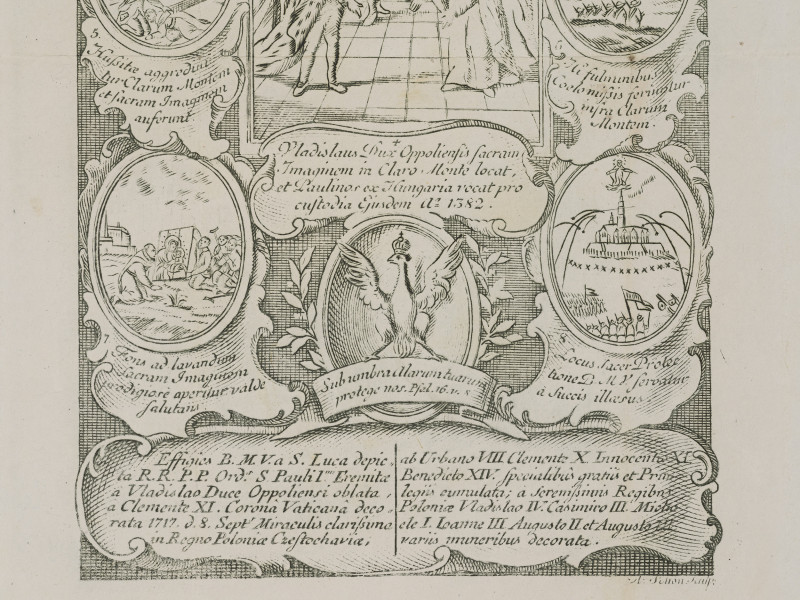 5.
Hussitæ aggrediun
tur Clarum Montem
et sacram Imaginem
auferunt
6. Hi fulminibus
Coelo missis feriuntur
infra Clarum
Montem.
Vladislaus Dux Oppoliensis sacram
Imaginem in Claro Monte locat,
et Paulinos ex Hungaria vocat pro
custodia Ejusdem Aº 1382.
7. Fons ad lavandum
sacram Imaginem
prodigiosè aperitur valde
salutaris
8.
Locus Sacer Protec
tione B. M. V. servatur
à Suecis illæsus.
Sub umbra Alarum tuarum
protege nos. Psal. 16. v. 8
Effigies B. M. V. a S. Luca depic,
ta R. R. P. P. Ord. S. Pauli I.mi Eremitæ
à Vladislao Duce Oppoliensi oblata,
a Clemente XI. Corona Vaticana deco,
rata 1717. d. 8. Sept. Miraculis clarissima
in Regno Poloniæ Czestochaviæ,
ab Urbano VIII Clemente X. Innocentio XI.
Benedicto XIV. specialibus gratiis et Privi
legiis cumulata; a Serenissimis Regibus
Poloniæ Vladislao IV. Casimiro III. Micha
ele I. Ioanne III Augusto II et Augusto III
variis muneribus decorata.